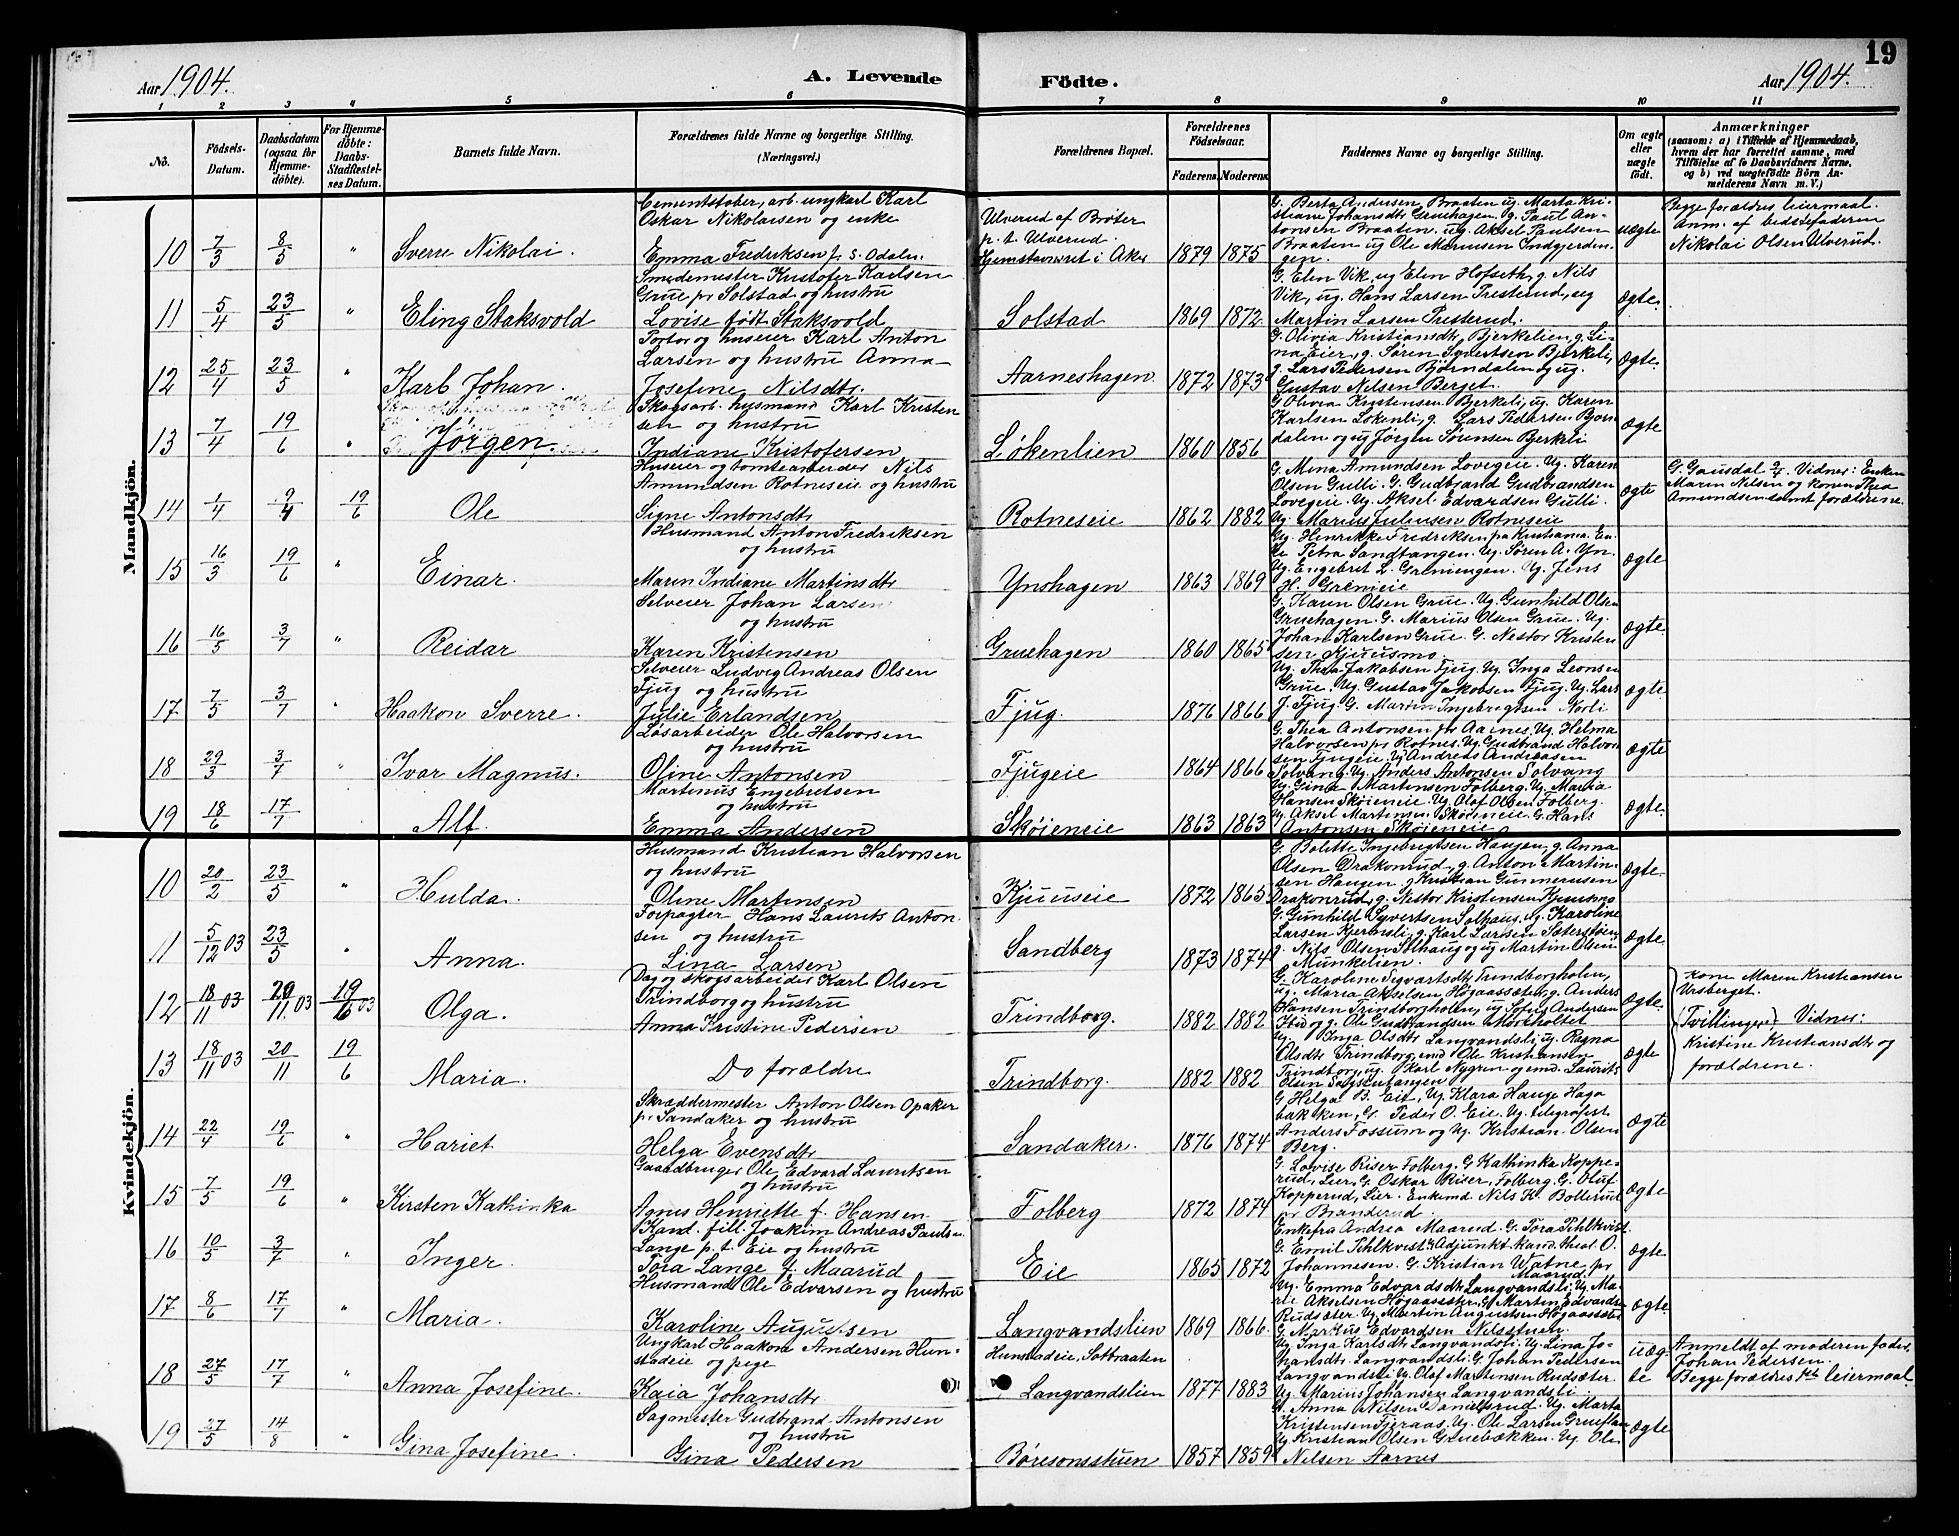 19
Aar 1904.
A. Levende Födte.
Aar 1904.
1 2 3 4 5 6 7 8 9 10 11
No.
Födsels-Datum.
Daabsdatum (ogsaa for Hjemme-döbte).
For Hjemme-döbte: Daabs-Stadfæstel-ses Datum.
Barnets fulde Navn.
Forældrenes fulde Navne og borgerlige Stilling. (Næringsvei.)
Forældrenes Bopæl.
Forældrenes Födselsaar.
Faderens. Moderens.
Faddernes Navne og borgerlige Stilling.
Om ægte eller uægte födt.
Anmærkninger
(saasom: a) i Tilfælde af Hjemmedaab, hvem der har forrettet samme, med Tilföielse af to Daabsvidners Navne, og b) ved uægtefödte Börn An-melderens Navn m. V.)
Mandkjön.
10 7/3 8/5 " Sverre Nikolai.
Cementstøber, arb. ungkarl Karl
Oskar Nikolaisen og enke
Emma Fredriksen f. S. Odalen.
Ulverud af Brøter
p. t. Ulverud.
Hjemstavnsret i Aker
1879 1875
G. Berta Andersen Braaten ug. Marta Kri-
stiane Johansdtr Gruehagen. Ug. Paul An-
tonsen Braaten. ug. Aksel Paulsen
Braaten ug Ole Mariusen Indgjerdin-
gen.
uægte
Begge forældres leiermaal.
Anm. af bedstefaderen
Nikolai Olsen Ulverud.
11 5/4 23/5 " Eling Staksvold
Smedemester Kristofer Karlsen
Grue pr Solstad og hustru
Lovise født Staksvold
Solstad 1869 1872
G. Elen Vik, ug Elen Hofseth, g. Nils
Vik, ug. Hans Larsen Presterud, ug
Martin Larsen Presterud.
ægte.
12 25/4 23/5 " Karl Johan.
Portør og huseier Karl Anton
Larsen og hustru Anna
Josefine Nilsdtr.
Aarneshagen. 1872 1873
G. Olivia Kristiansdtr, Bjerkelien, g. Li-
na Eier, g. Søren Syvertsen Bjerkeli,
g. Lars Pedersen Bjørndalen og ug.
Gustav Nilsen Berget.
ægte.
13 7/4 19/6 " Jørgen.
Skogsarb. husmand Karl Kristen
sen og hustru
Indiane Kristofersen
Løkenlien 1860 1856
G Olivia Kristensen Bjerkeli, ug. Karen
Karlsen Løkenli, g. Lars Pedersen Bjørn
dalen og ug Jørgen Sørensen Bjerkeli
ægte
14 1/4 9/4 19/6 Ole
Huseier og tomtearbeider Nils
Amundsen Rotneseie og hustru
Signe Antonsdtr
Rotneseie 1862 1882
G. Mina Amundsen Lovegeie. Ug. Karen
Olsen Gulli. G. Gudbrand Gudbrandsen
Lovegeie. Ug Aksel Edvardsen Gulli.
Ug. Marius Juliusen Rotneseie
ægte
G. Gausdal 9/4. Vidner: Enken
Maren Nilsen og konen Thea
Amundsen samt forældrene.
15 16/3 19/6 " Einar.
Husmand Anton Fredriksen
og hustru
Maren Indiane Martinsdtr
Ynshagen 1863 1869
Ug. Henrikke Fredriksen fra Kristiania. En-
ke Petra Sandtangen. Ug. Søren A. Yn.
Ug. Engebret L. Greniengen. Ug. Jens
H. Grenieie
ægte
16 16/5 3/7 " Reidar
Selveier Johan Larsen
og hustru
Karen Kristensen
Gruehagen 1860 1865
G. Karen Olsen Grue. Ug. Gunhild Olsen
Gruehagen. G. Marius Olsen Grue. Ug.
Johan Karlsen Grue. G. Nestor Kristen
sen Kjuusmo.
ægte.
17 7/5 3/7 " Haakon Sverre.
Selveier Ludvig Andreas Olsen
Fjug og hustru
Julie Erlandsen
Fjug. 1876 1866
Ug. Thea Jakobsen Fjug. Ug. Inga Leonsen
Grue. Ug. Gustav Jakobsen Fjug. Ug. Lars
J. Fjug G. Martin Ingebregtsen Norli
ægte.
18 29/3 3/7 " Ivar Magnus.
Løsarbeider Ole Halvorsen
og hustru
Oline Antonsen
Fjugeie 1864 1866
G. Thea Antonsen pr Aarnes. Ug. Helma
Halvorsen pr Rotnes. Ug. Gudbrand Halvor
sen Fjugeie. Ug Andreas Andreasen
Solvang. Ug. Anders Antonsen Solvang
ægte
19 18/6 17/7 Alf.
Martinus Engebretsen
og hustru
Emma Andersen
Skøieneie 1863 1863
Ug. Gina Martinsen Folberg. Ug. Maria
Hansen Skøieneie. Ug. Olaf Olsen Folberg.
Ug. Aksel Martinsen Skøieneie. G. Hans
Antonsen Skøieneie
ægte.
Kvindekjön.
10 20/2 23/5 " Hulda.
Husmand Kristian Halvorsen
og hustru
Oline Martinsen
Kjuuseie 1872 1865
G. Bolette Ingebrigtsen Haugen, g. Anna
Olsen Drakonrud, g. Anton Martin-
sen Haugen, g Kristian Gunnerusen
Drakonrud, g. Nestor Kristensen Kjuusmo
ægte.
11 5/12 03 23/5 " Anna.
Forpagter Hans Laurits Anton-
sen og hustru
Lina Larsen
Sandberg 1873 1874
G. Gunhild Syvertsen Solhaug, ug. Karoline
Larsen Kjernsli, g. Karl Larsen Sæterstøen
g. Nils Olsen Solhaug og ug Martin Olsen
Munkelien.
ægte.
12 18/11 03 20/11 03 19/6 03 Olga.
Dag og skogsarbeider Karl Olsen
Trindborg og hustru
Anna Kristine Pedersen
Trindborg. 1882 1882
G. Karoline Sigvartsdtr, Trindborgholen,
ug. Maria Akselsen Høgaassæter, g. Anders
Hansen Trindborgholen, ug Sofus Andersen
Ibid og g. Ole Gudbrandsen Mørkholtet
ægte.
kone Maren Kristiansen
Ursberget.
(Tvillinger) Vidner:
Kristine Kristiansdtr og
forældrene.
13 18/11 03 20/11 19/6 Maria.
Do forældre
Trindborg. 1882 1882
Ug. Inga Olsdtr Langvandsli, ug. Ragna
Olsdtr Trindborg, emd Ole Kristiansen
Trindborg, ug. Karl Nygren og emd. Laurits
Olsen Sagstutangen
ægte
14 22/4 19/6 " Hariet
Skræddermester Anton Olsen Opaker
p. Sandaker og hustru
Helga Evensdtr
Sandaker. 1876 1874
G Helga B. Eie, Ug Klara Hauge Haga
bakken, G. Peder O. Eie. Ug. telegrafist
Anders Fossum og Ug. Kristian Olsen
Berg.
ægte
15 7/5 19/6 " Kirsten Kathinka
Gaardbruger Ole Edvard Lauritsen
og hustru
Agnes Henriette f. Hansen
Folberg 1872 1874
G. Lovise Riser Folberg. G Kathinka Koppe-
rud, Lier, G. Oskar Riser, Folberg. G. Oluf
Kopperud, Lier. Enkemd Nils K. Bollerud
pr Branderud.
ægte
16 10/5 3/7 " Inger.
Kand. fill. Joakim Andreas Paulsen
Lange p. t. Eie og hustru
Tora Lange f. Maarud
Eie 1865 1872
Enkefru Andrea Maarud. G. Tora Pihlkvist
G. Emil Pihlkvist. G Adjunkt Kand. theol. O.
Johannesen. G. Kristian Watne pr
Maarud.
ægte
17 8/6 17/7 " Maria.
Husmand Ole Edvarsen og hustru
Karoline Augustsen
Langvandslien 1869 1866.
Ug. Emma Edvardsdtr Langvandsli. Ug. Ma-
rie Akselsen Høgaassæter. G. Martin Edvardsen
Rudsæter. Ug. Martin Augustsen Høgaassæter
G. Markus Edvardsen Nilsstuen
ægte
18 27/5 17/7 " Anna Josefine.
Ungkarl Haakon Andersen Hun-
stadeie og pige
Kaia Johansdtr
Hunstadeie, Sottraaten
Langvandslien 1877 1883
Ug. Inga Karlsdtr Langvandsli. Ug. Lina Jo-
hansdtr. Langvandsli. G. Johan Pedersen
Langvandsli Ug. Olaf Martensen Rudsæter
Ug. Marius Johansen Langvandsli.
uæg-
te
Anmeldt af moderen fader,
Johan Pedersen.
Begge forældres leiermaal.
19 27/5 14/8 " Gina Josefine.
Sagmester Gudbrand Antonsen
og hustru
Gina Pedersen
Børesonsstuen 1857 1859
G. Anna Nilsen Danielsrud. Ug. Marta
Kristensen Fjeraas, Ug. Ole Larsen
Ug. Kristian Olsen Gruebækken. Ug. Ole
Nilsen Aarnes
ægte